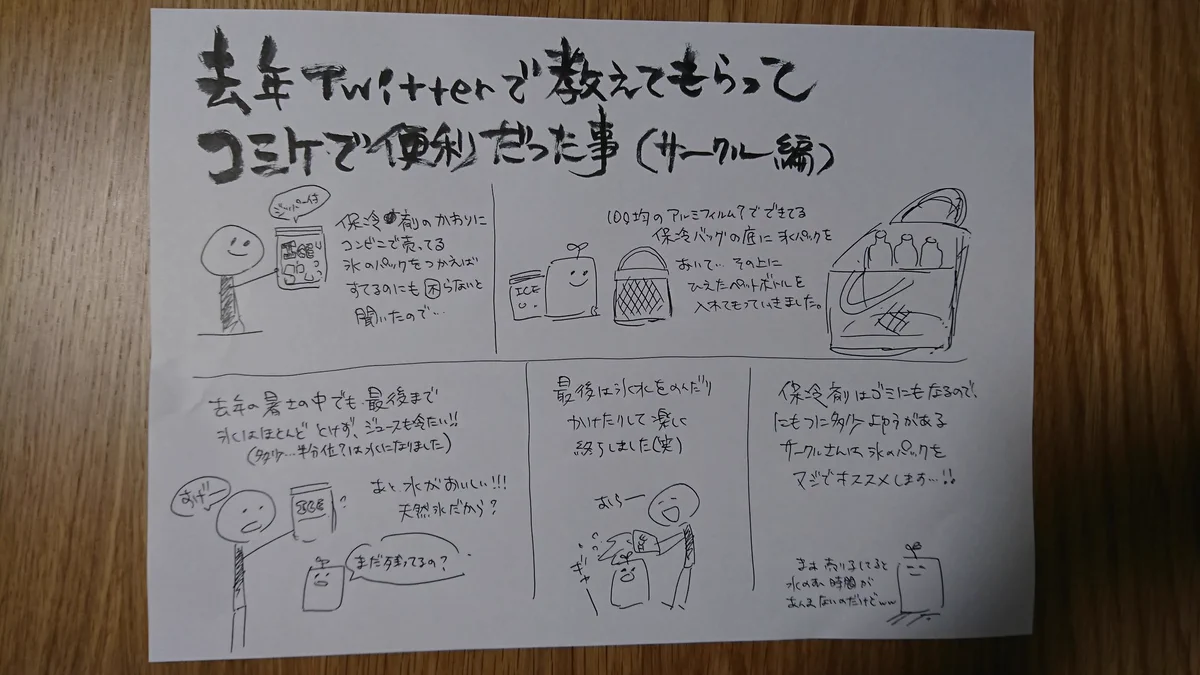 去年Twitterで教えてもらって
コミケで便利だった事(サークル編)
ジッパー付
ICE
保冷剤のかわりに
コンビニで売ってる
氷のパックをつかえば
すてるのにも困らないと
聞いたので…
100均のアルミフィルム?でできてる
保冷バッグの底に氷パックを
おいて… その上に
ひえたペットボトルを
入れてもっていきました。
ICE
去年の暑さの中でも最後まで
氷はほとんどとけず、ジュースも冷たい!!
(多少…半分位?は水になりました)
あと、氷がおいしい!!!
天然氷だから?
おげー
ICE
?
まだ残ってるの?
最後は氷水をのんだり
かけたりして楽しく
終らしました(笑)
おらー
ギャー
保冷剤はゴミにもなるので、
にもつに多少よゆうがある
サークルさんは氷のパックを
マジでオススメします…!!
まぁ売り子してると
水のむ時間が
あんまないのだけどww